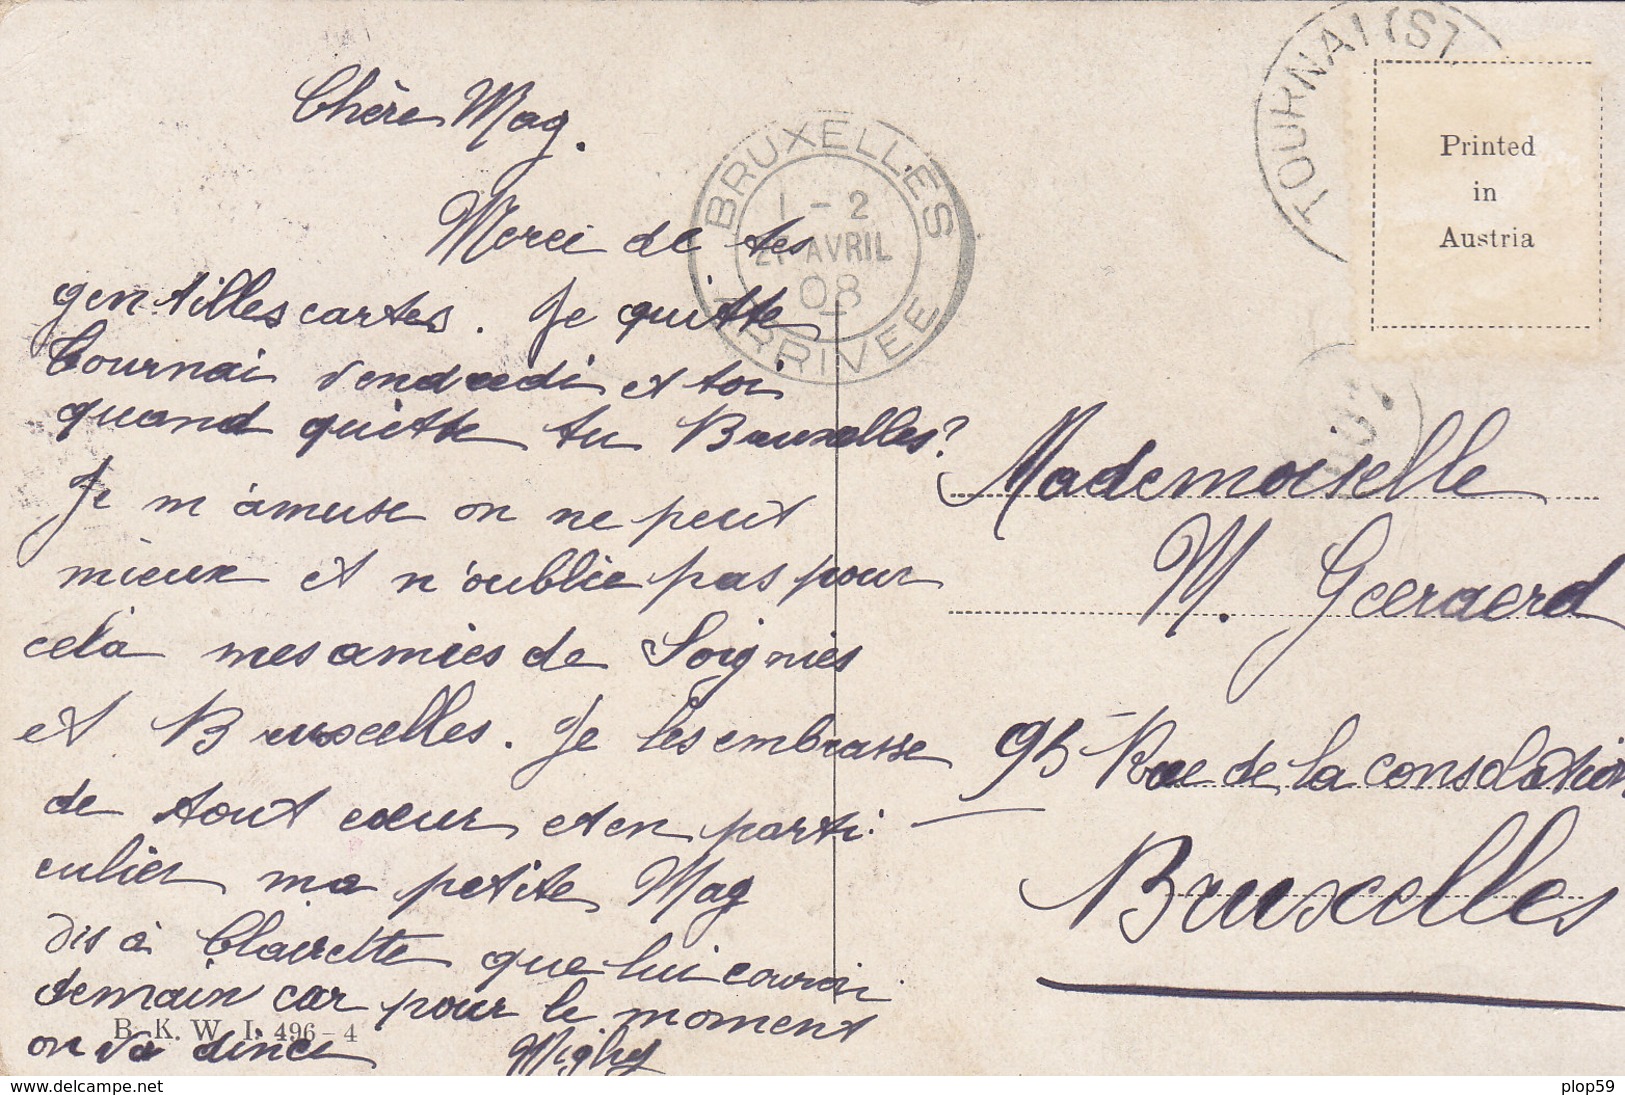 Chère Mag.
Merci de tes
gentilles cartes. Je quitte
Tournai vendredi et toi
quand quitte tu Bruxelles?
Je m'amuse on ne peut
mieux et n'oublie pas pour
cela mes amies de Soignies
et Bruxelles. Je les embrasse
de tout cœur et en parti-
culier ma petite Mag
dis à Clairette que lui
demain car pour le moment
on va diner
B. K. W. I. 496-4
BRUXELLES
1-2
AVRIL
08
ARRIVEE
TOURNAI (S)
Printed
in
Austria
Mademoiselle
M. Geeraerd
95 Rue de la consolation
Bruxelles
delcampe.net
plop59